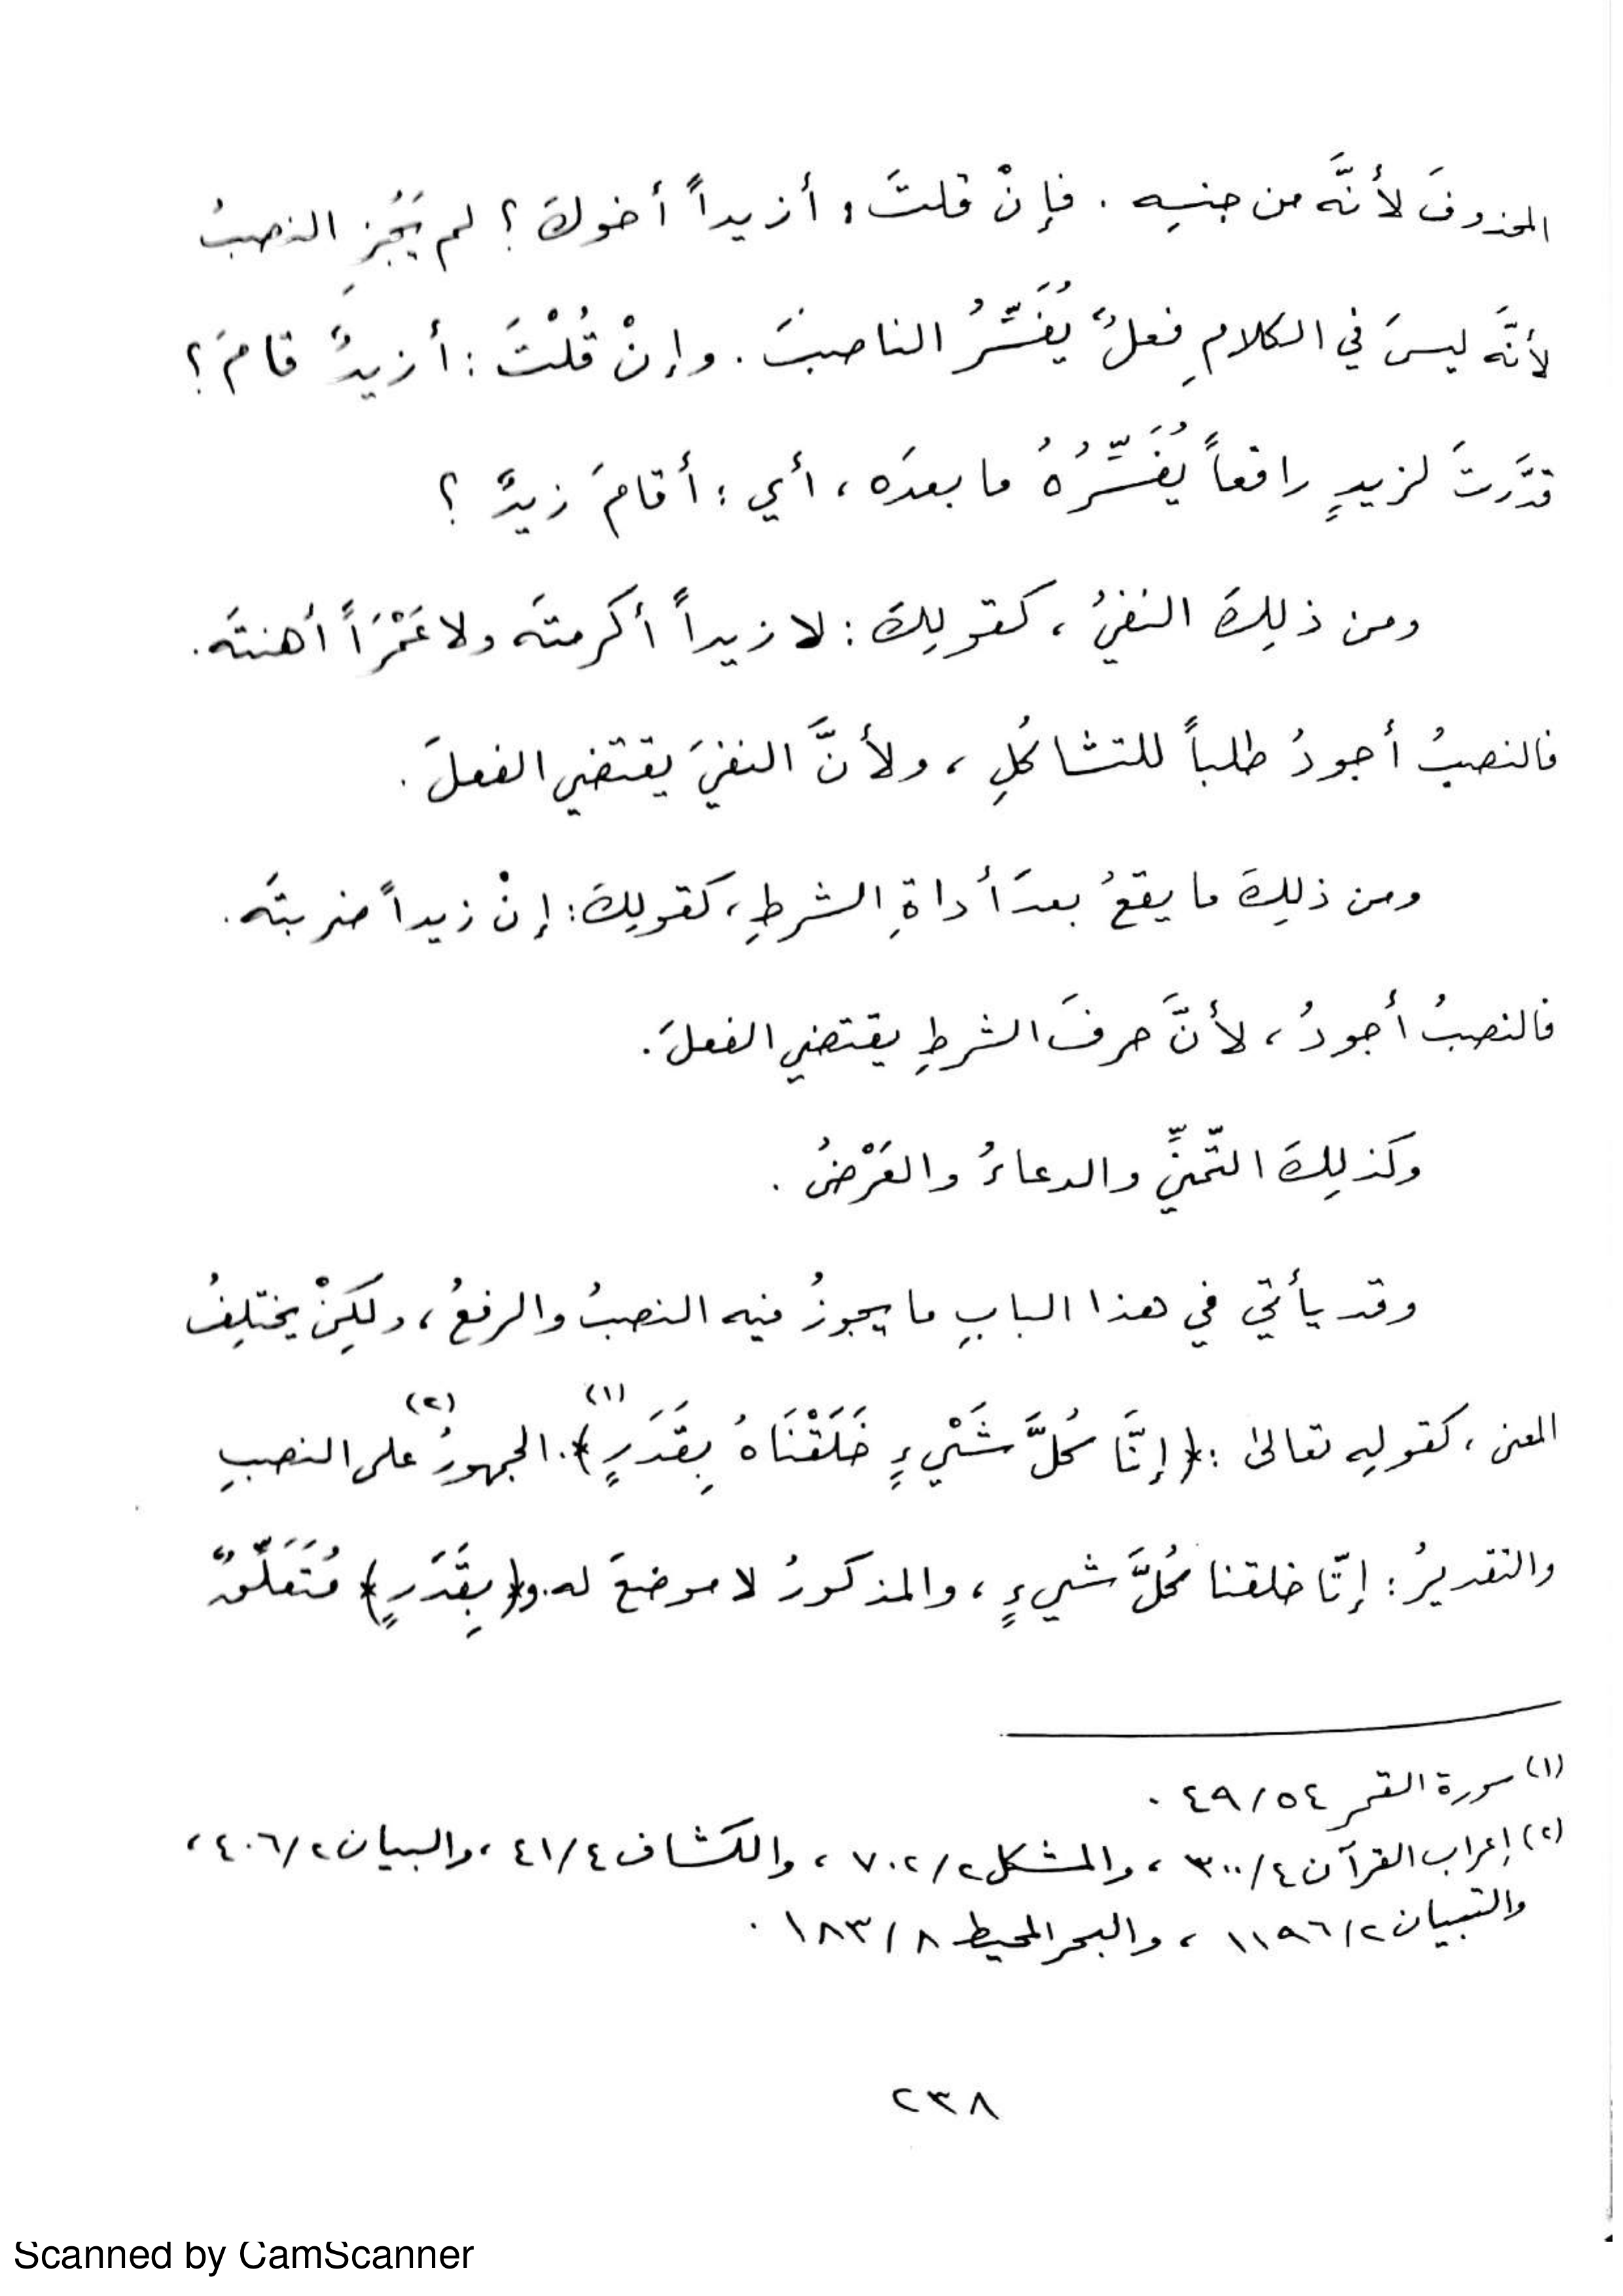 المحذوفَ لأنَّه من جنسِه . فإنْ قلتَ : أزيداً أخوكَ ؟ لم يَجُزِ النصبُ
لأنَّه ليسَ في الكلامِ فعلٌ يُفَسِّرُ الناصبَ . وإنْ قُلْتَ : أزيدٌ قامَ ؟
قدَّرتَ لزيدٍ رافعاً يُفَسِّرُهُ ما بعدَه ، أي : أقامَ زيدٌ ؟
ومن ذلِكَ النفيُ ، كقولِكَ : لا زيداً أكرمتَه ولا عَمْرَاً أهنتَه .
فالنصبُ أجودُ طلباً للتشاكُلِ ، ولأنَّ النفيَ يقتضي الفعلَ .
ومن ذلِكَ ما يقعُ بعدَ أداةِ الشرطِ ، كقولِكَ : إنْ زيداً ضربتَه .
فالنصبُ أجودُ ، لأنَّ حرفَ الشرطِ يقتضي الفعلَ .
وكذلِكَ التّمنِّي والدعاءُ والعَرْضُ .
وقد يأتي في هذا البابِ ما يجوزُ فيه النصبُ والرفعُ ، ولكِنْ يختلِفُ
المعنى ، كقولِه تعالىٰ : ﴿إنَّا كُلَّ شَيْءٍ خَلَقْنَاهُ بِقَدَرٍ﴾(١) . الجمهورُ(٢) على النصبِ
والتقديرُ : إنّا خلقنا كُلَّ شيءٍ ، والمذكورُ لا موضعَ له . و﴿بِقَدَرٍ﴾ مُتَعَلِّقٌ
(١) سورة القمر ٥٤/٤٩ .
(٢) إعراب القرآن ٤/٣٠٠ ، والمشكل ٢/٧٠٢ ، والكشاف ٤/٤١ ، والبيان ٢/٤٠٦ ،
والتبيان ٢/١١٩٦ ، والبحر المحيط ٨/١٨٣ .
٢٣٨
Scanned by CamScanner